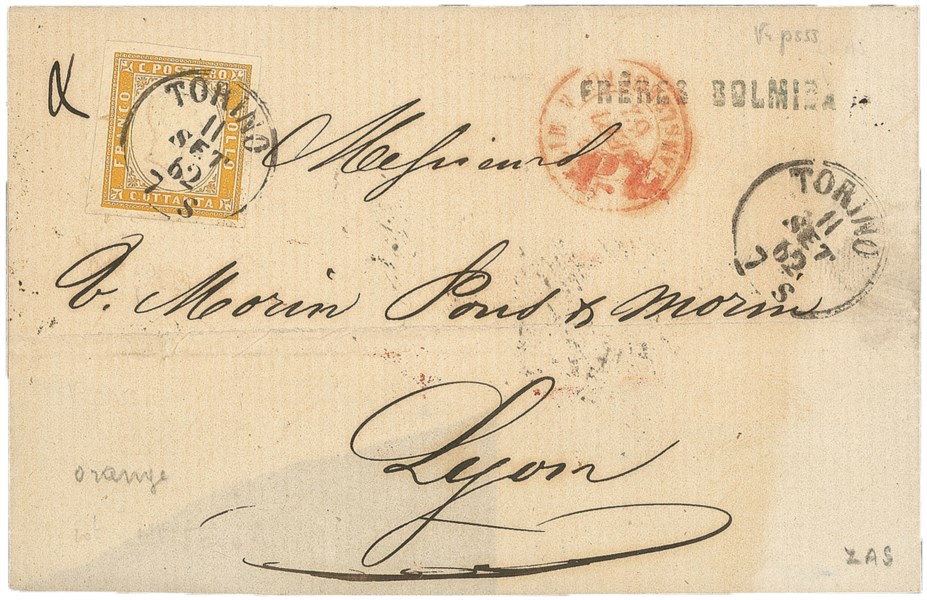 C. POSTE 80
FRANCO
BOLLO
C. OTTANTA
TORINO
11
SET
62
7 S
FRÈRES BOLMIDA
Messieurs
Ve. Morin Pons & Morin
Lyon
TORINO
11
SET
62
7 S
orange
ZAS